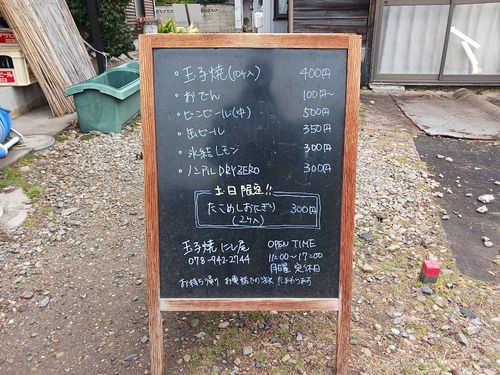 ・玉子焼(10ヶ入) 400円
・おでん 100円〜
・ビンビール(中) 500円
・缶ビール 350円
・氷結レモン 300円
・ノンアルDRY ZERO 300円
土日限定!!
たこめしおにぎり 300円
(2ヶ入)
玉子焼 にし尾 OPEN TIME
078-942-2744 11:00〜17:00
月曜 定休日
お持ち帰り お電話での注文 たまわります